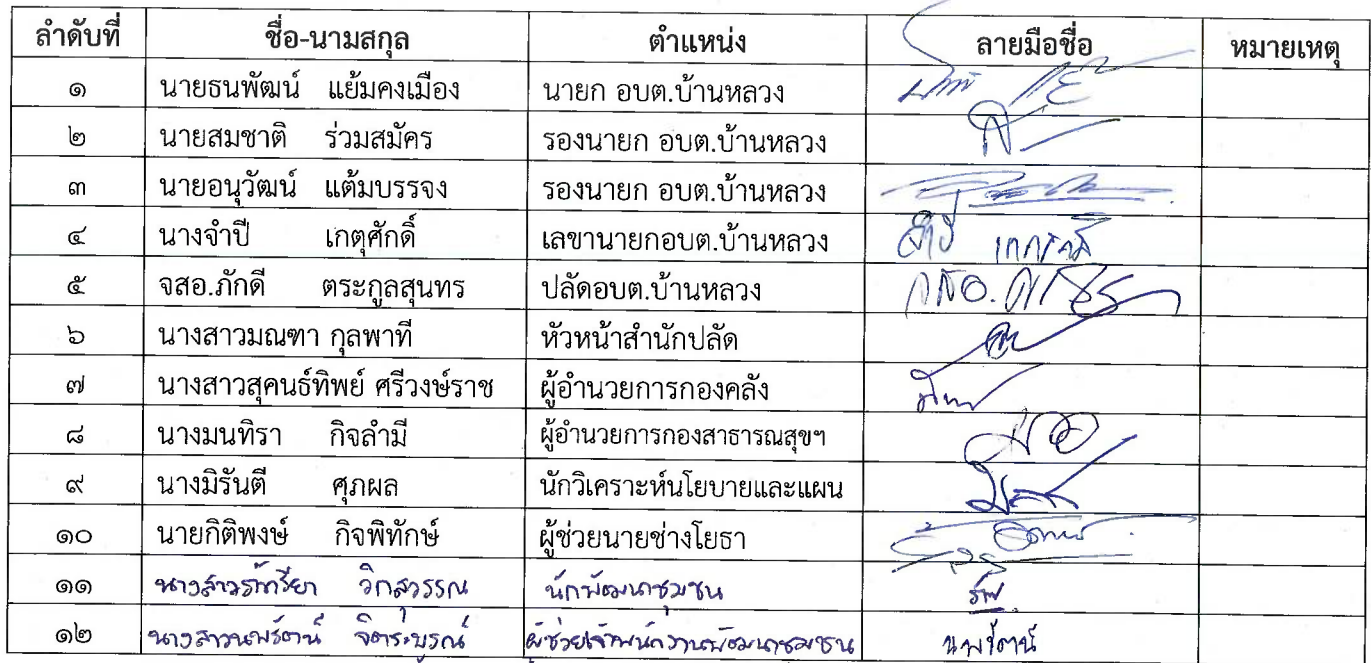 ลำดับที่ ชื่อ-นามสกุล ตำแหน่ง ลายมือชื่อ หมายเหตุ
๑ นายธนพัฒน์ แย้มคงเมือง นายก อบต.บ้านหลวง
๒ นายสมชาติ ร่วมสมัคร รองนายก อบต.บ้านหลวง
๓ นายอนุวัฒน์ แต้มบรรจง รองนายก อบต.บ้านหลวง
๔ นางจำปี เกตุศักดิ์ เลขานายกอบต.บ้านหลวง
๕ จสอ.ภักดี ตระกูลสุนทร ปลัดอบต.บ้านหลวง
๖ นางสาวมณฑา กุลพาที หัวหน้าสำนักปลัด
๗ นางสาวสุคนธ์ทิพย์ ศรีวงษ์ราช ผู้อำนวยการกองคลัง
๘ นางมนทิรา กิจลำมี ผู้อำนวยการกองสาธารณสุขฯ
๙ นางมิรันตี ศุภผล นักวิเคราะห์นโยบายและแผน
๑๐ นายกิติพงษ์ กิจพิทักษ์ ผู้ช่วยนายช่างโยธา
๑๑ นักพัฒนาชุมชน
๑๒ นางสาวนพรัตน์ จิตระบูรณ์ ผู้ช่วยเจ้าพนักงานพัฒนาชุมชน นพรัตน์